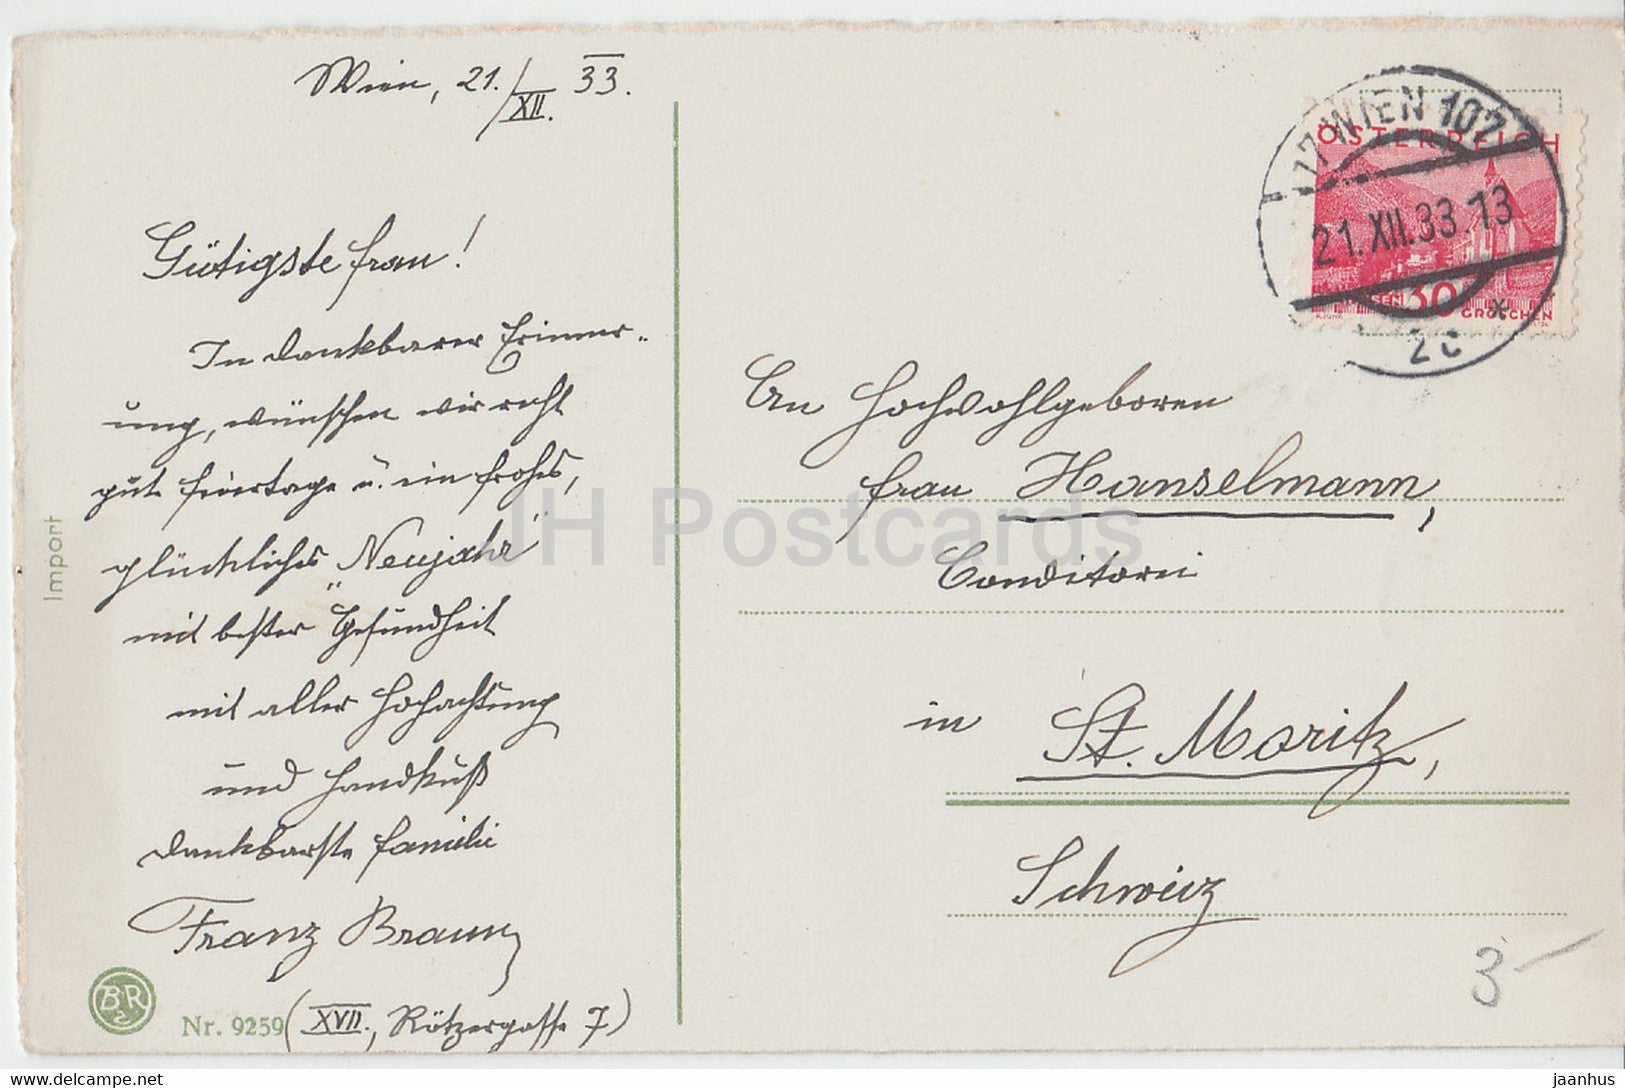 Wien, 21./XII. 33.
Gütigste Frau!
In dankbarer Erinner-
ung, wünschen wir recht
gute Feiertage u. ein frohes,
glückliches „Neujahr"
mit bester Gesundheit
mit aller Hochachtung
und Handkuß
dankbarste Familie
Franz Braun
(XVII., Rötzergasse 7)
Nr. 9259
BR
Import
17 WIEN 107
21.XII.33.13
* 2c
ÖSTERREICH
30
GROSCHEN
An Hochwohlgeboren
Frau Hanselmann,
Conditorei
in St. Moritz,
Schweiz
3-
JH Postcards
delcampe.net
jaanhus